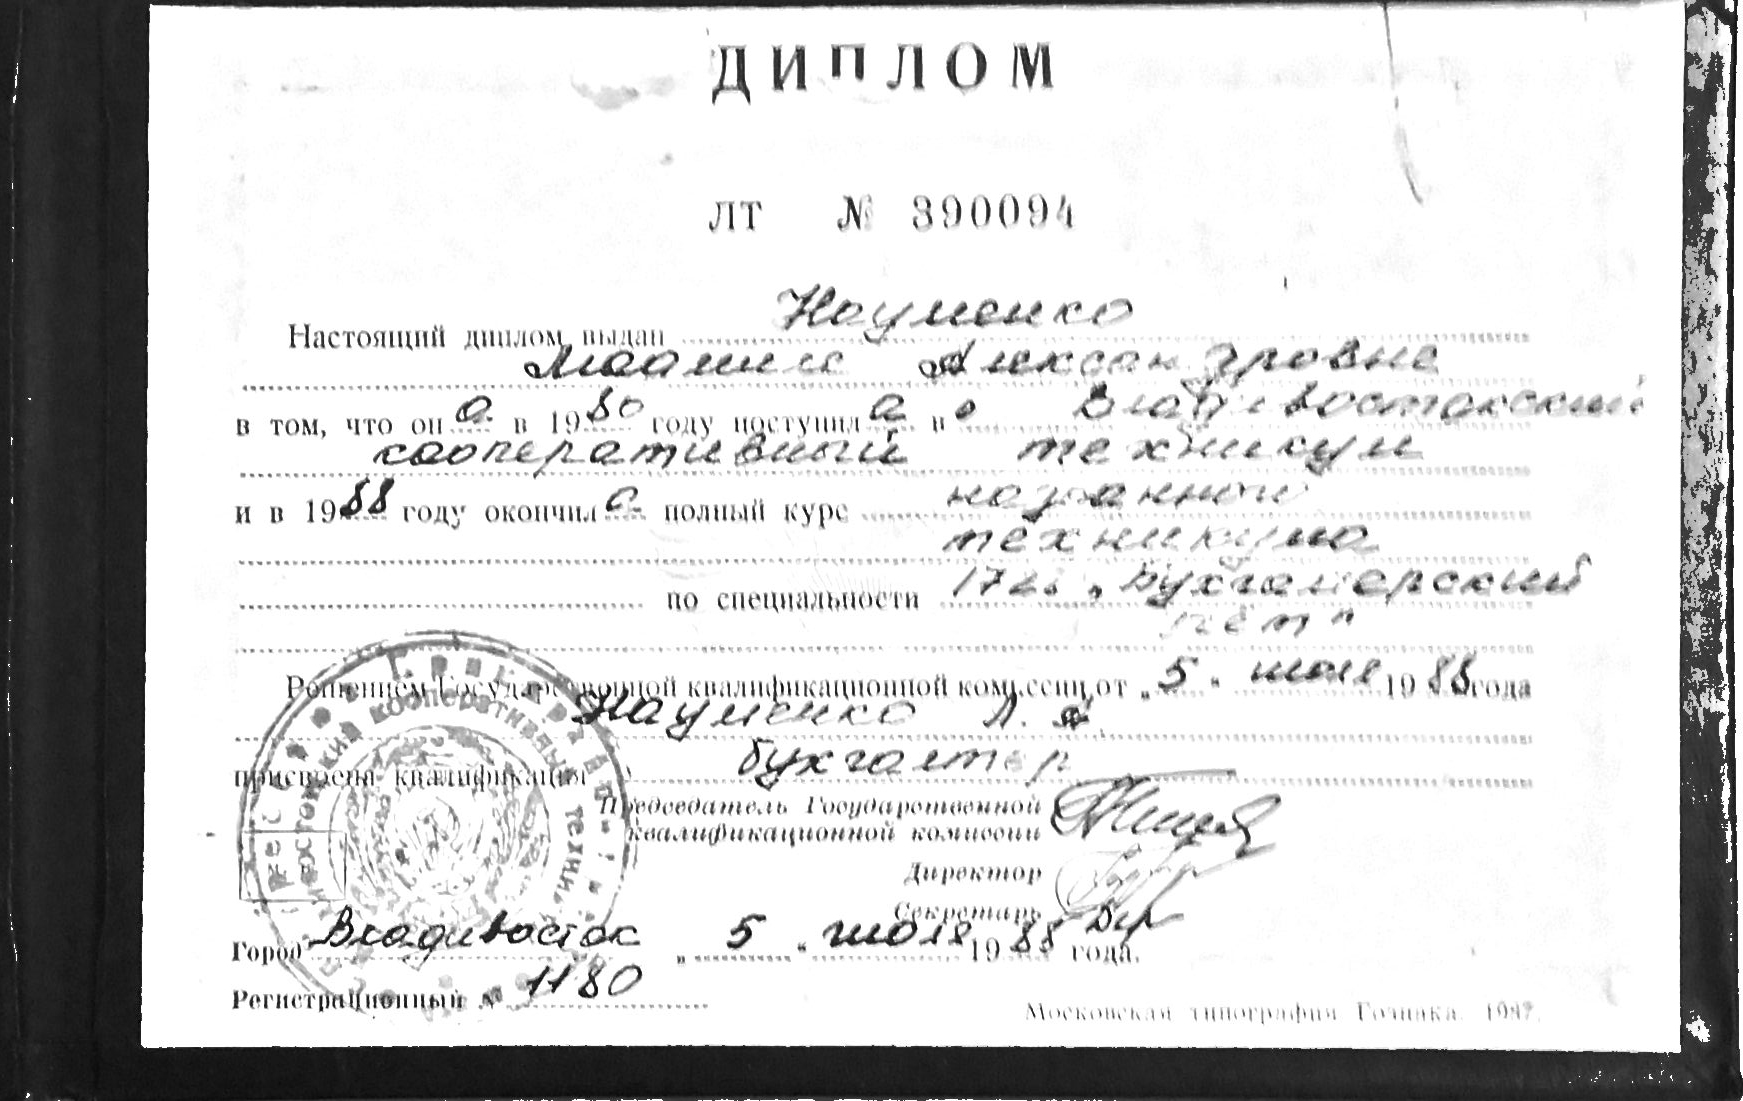 ДИПЛОМ
ЛТ № 390094
Настоящий диплом выдан Науменко
Александровне
в том, что она в 1980 году поступила в Владивостокский
кооперативный техникум
и в 1988 году окончила полный курс названного
техникума
по специальности "Бухгалтерский
учёт"
Решением Государственной квалификационной комиссии от „5" июля 1988 года
Науменко Л. А.
присвоена квалификация бухгалтер
Председатель Государственной
квалификационной комиссии
Директор
Секретарь
Город Владивосток „5" июля 1988 года.
Регистрационный № 1180
Московская типография Гознака. 1987.
кооперативный техникум